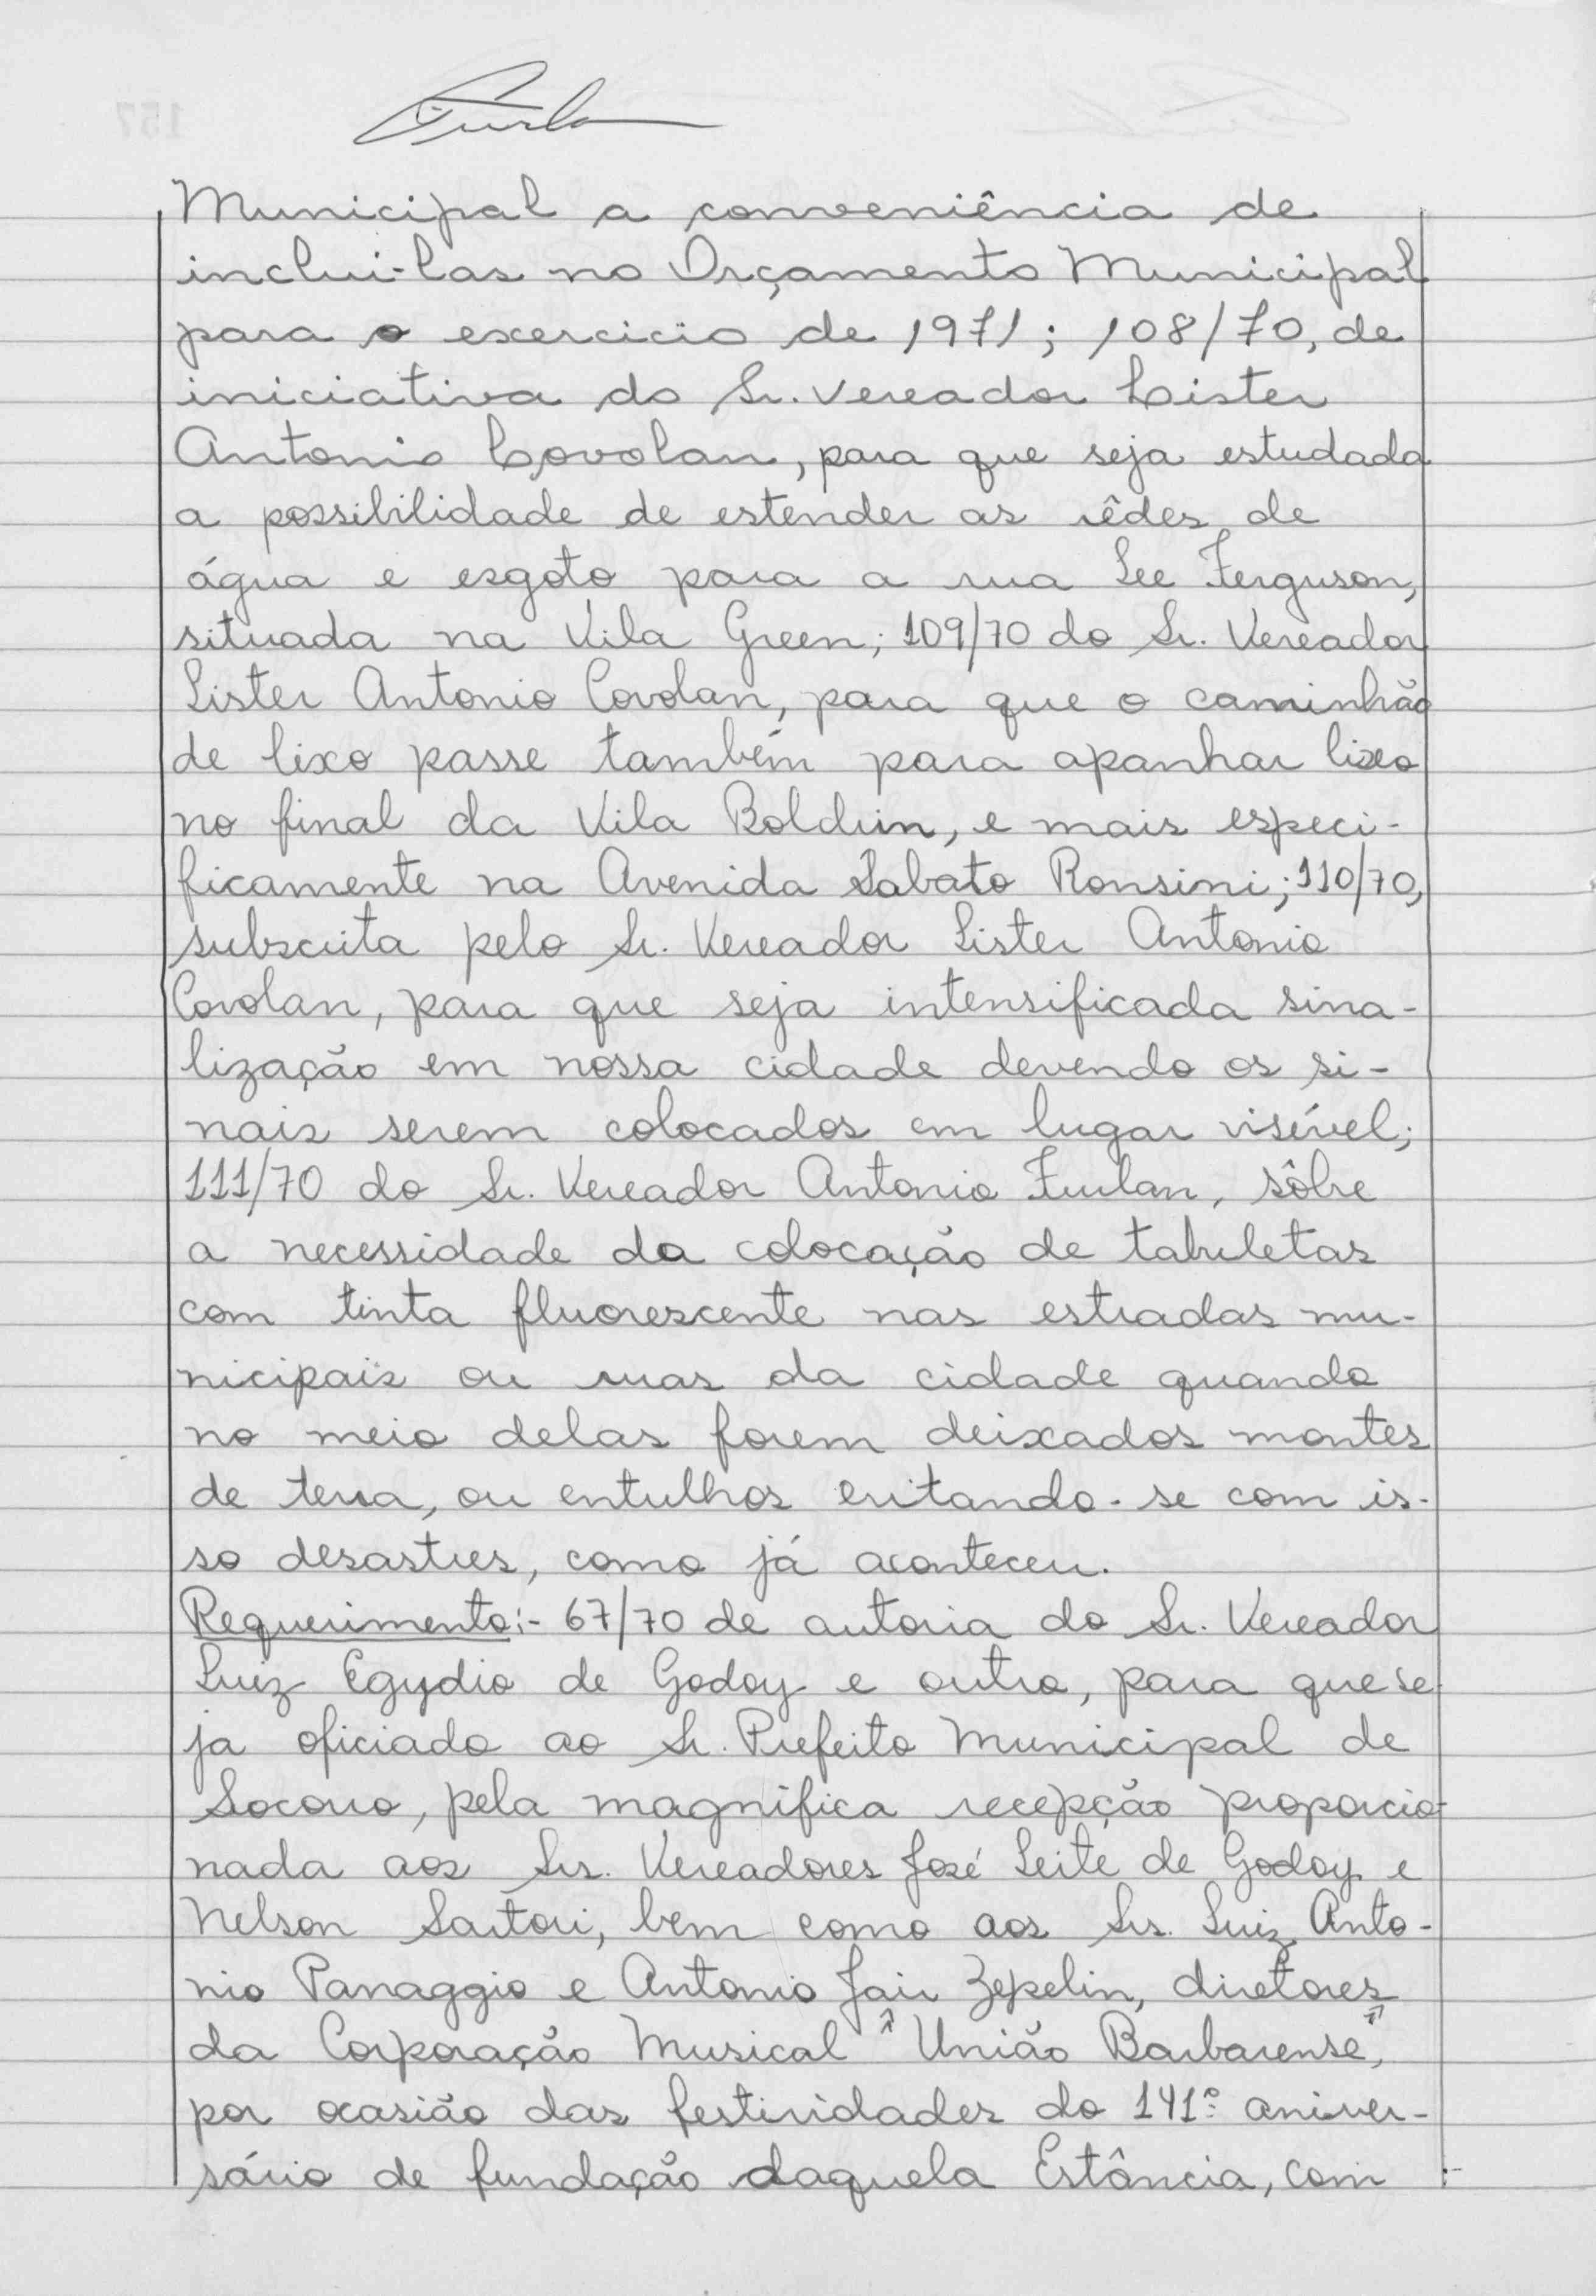 Furlan
Municipal a conveniência de
inclui-las no Orçamento Municipal
para o exercicio de 1971; 108/70, de
iniciativa do Sr. Vereador Lister
Antonio Covolan, para que seja estudada
a possibilidade de estender as rêdes de
água e esgoto para a rua Lee Ferguson,
situada na Vila Green; 109/70 do Sr. Vereador
Lister Antonio Covolan, para que o caminhão
de lixo passe também para apanhar lixo
no final da Vila Boldrin, e mais especi-
ficamente na Avenida Sabato Ronsini; 110/70,
subscrita pelo Sr. Vereador Lister Antonio
Covolan, para que seja intensificada sina-
lização em nossa cidade devendo os si-
nais serem colocados em lugar visível;
111/70 do Sr. Vereador Antonio Furlan, sôbre
a necessidade da colocação de tabuletas
com tinta fluorescente nas estradas mu-
nicipais ou ruas da cidade quando
no meio delas forem deixados montes
de terra, ou entulhos evitando-se com is-
so desastres, como já aconteceu.
Requerimento:- 67/70 de autoria do Sr. Vereador
Luiz Egydio de Godoy e outro, para que se
ja oficiado ao Sr. Prefeito Municipal de
Socorro, pela magnífica recepção proporcio-
nada aos Srs. Vereadores José Leite de Godoy e
Nelson Sartori, bem como aos Srs. Luiz Anto-
nio Panaggio e Antonio Jair Zepelin, diretores
da Corporação Musical "União Barbarense",
por ocasião das festividades do 141º aniver-
sário de fundação daquela Estância, com